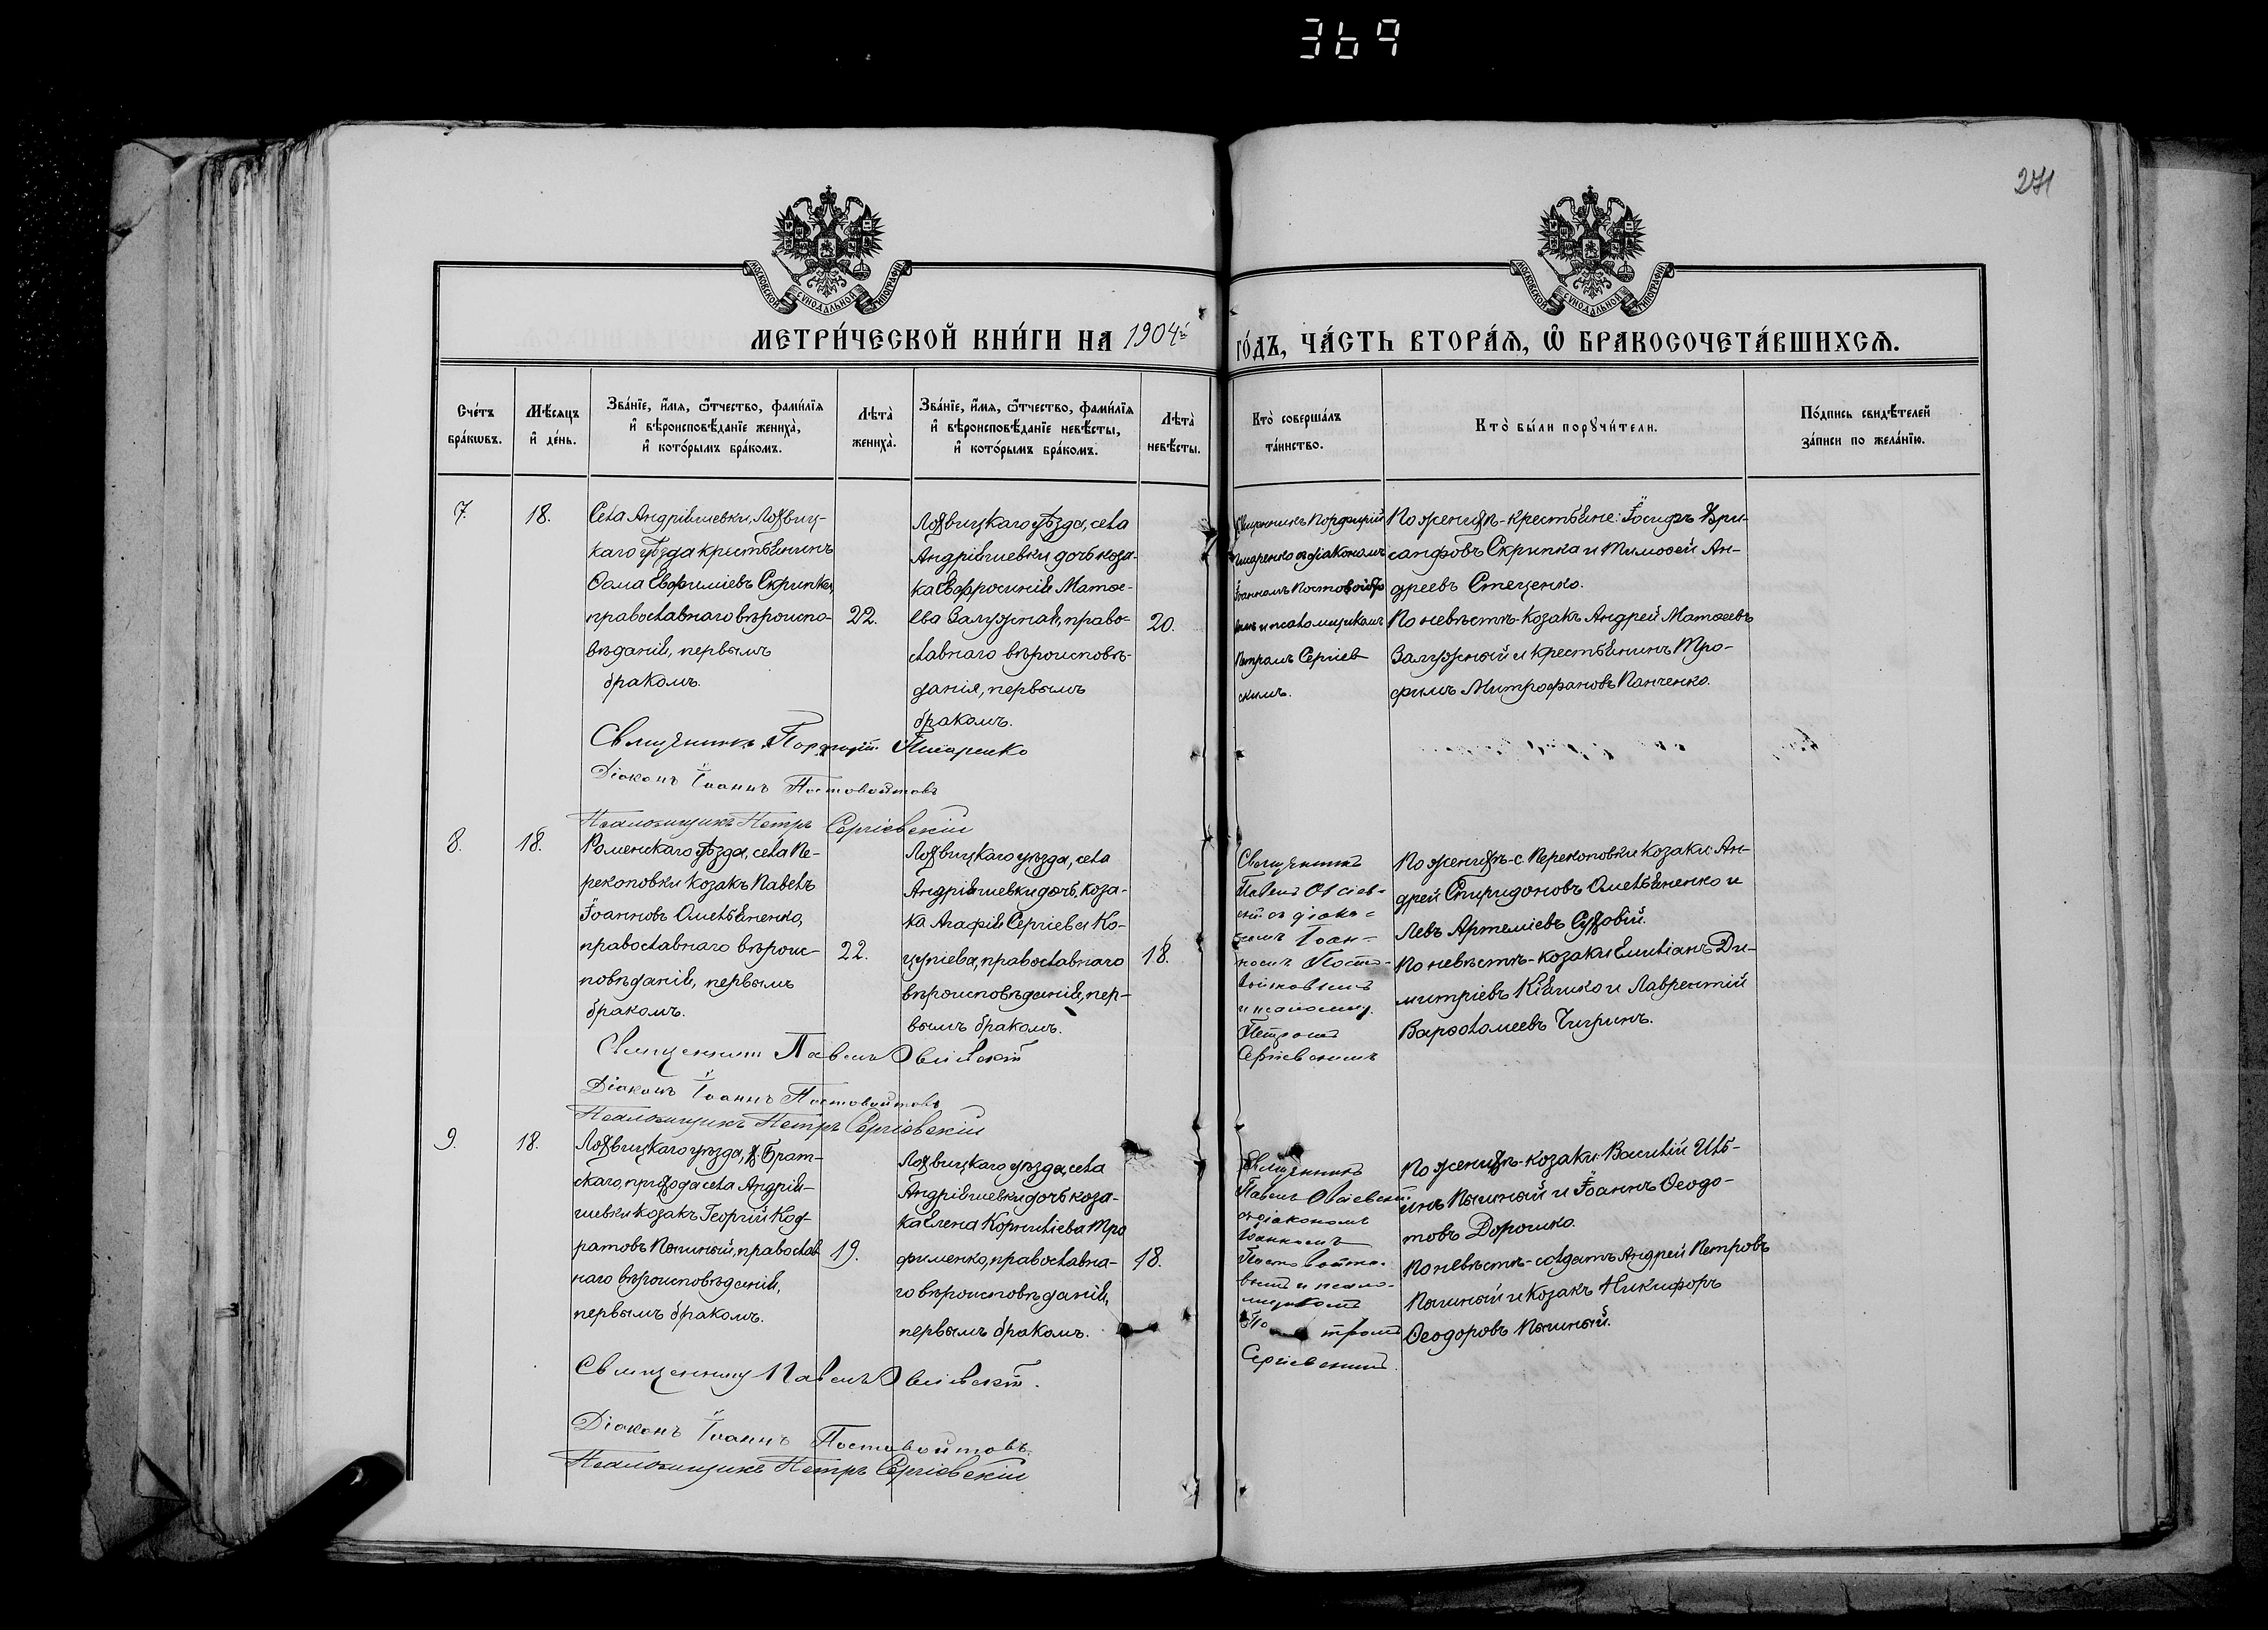 369
271
МОСКОВСКОЙ СУНОДАЛЬНОЙ ТИПОГРАФІИ
МОСКОВСКОЙ СУНОДАЛЬНОЙ ТИПОГРАФІИ
МЕТРИ́ЧЕСКОЙ КНИ́ГИ НА 1904й
ГО́ДЪ, ЧА́СТЬ ВТОРА́Ѧ, Ѡ҆ БРАКОСОЧЕТА́ВШИХСѦ.
Сче́тъ
бра́кѡвъ.
Мѣ́сяцъ
и҆ де́нь.
Зва́нїе, и҆́мя, ѻ҆́тчество, фами́лїя
и҆ вѣроисповѣ́данїе жениха̀,
и҆ кото́рымъ бра́комъ.
Лѣта̀
жениха̀.
Зва́нїе, и҆́мя, ѻ҆́тчество, фами́лїя
и҆ вѣроисповѣ́данїе невѣ́сты,
и҆ кото́рымъ бра́комъ.
Лѣта̀
невѣ́сты.
Кто̀ соверша́лъ
та́инство.
Кто̀ бы́ли порꙋчи́тели.
По́дпись свидѣ́телей
за́писи по жела́нїю.
7.
18.
Села Андріяшевки, Лохвиц-
каго уѣзда крестьянинъ
Ѳома Евфиміевъ Скрипка,
православнаго вѣроиспо-
вѣданія, первымъ
бракомъ.
22.
Лохвицкаго уѣзда, села
Андріяшевки дочь коза-
ка Евфросинія Матѳе-
ева Залужная, право-
славнаго вѣроисповѣ-
данія, первымъ
бракомъ.
20.
Священникъ Порфирій
Писаренко съ діакономъ
Іоанномъ Постовойто
вымъ и псаломщикомъ
Петромъ Сергіев
скимъ.
По женихѣ-крестьяне: Іосифъ Хри-
санфовъ Скрипка и Тимоѳей Ан-
дреевъ Стеценко.
По невѣстѣ-козакъ Андрей Матѳеевъ
Залужный и крестьянинъ Тро-
фимъ Митрофановъ Панченко.
Священникъ Порфирій Писаренко
Діаконъ Іоаннъ Постовойтовъ
Псаломщикъ Петръ Сергіевскій
8.
18.
Роменскаго уѣзда, села Пе-
рекоповки козакъ Павелъ
Іоанновъ Омельяненко,
православнаго вѣроис-
повѣданія, первымъ
бракомъ.
22.
Лохвицкаго уѣзда, села
Андріяшевки дочь коза-
ка Агафія Сергіева Ко-
цупіева, православнаго
вѣроисповѣданія, пер-
вымъ бракомъ.
18.
Священникъ
Павелъ Овсіев-
скій съ діако-
номъ Іоан-
номъ Посто-
войтовымъ
и псаломщ.
Петромъ
Сергіевскимъ
По женихѣ-с Перекоповки козаки: Ан-
дрей Спиридоновъ Омельяненко и
Левъ Артеміевъ Суховій.
По невѣстѣ-козаки Емиліанъ Ди-
митріевъ Кіяшко и Лаврентій
Варѳоломеевъ Чигринъ.
Священникъ Павелъ Овсіевскій
Діаконъ Іоаннъ Постовойтовъ
Псаломщикъ Петръ Сергіевскій
9.
18.
Лохвицкаго уѣзда, х. Брат-
скаго, прихода села Андрія-
шевки козакъ Георгій Код-
ратовъ Пышный, православ
наго вѣроисповѣданія,
первымъ бракомъ.
19.
Лохвицкаго уѣзда, села
Андріяшевки дочь коза-
ка Елена Корниліева Тро
фименко, православна-
го вѣроисповѣданія,
первымъ бракомъ.
18.
Священникъ
Павелъ Овсіевскій
съ діакономъ
Іоанномъ
Постовойто-
вымъ и псало-
мщикомъ
Петромъ
Сергіевскимъ.
По женихѣ-козаки: Василій Иль-
инъ Пышный и Іоаннъ Ѳеодо-
товъ Дорошко.
По невѣстѣ-солдатъ Андрей Петровъ
Пышный и козакъ Никифоръ
Ѳеодоровъ Пышный.
Священникъ Павелъ Овсіевскій.
Діаконъ Іоаннъ Постовойтовъ.
Псаломщикъ Петръ Сергіевскій